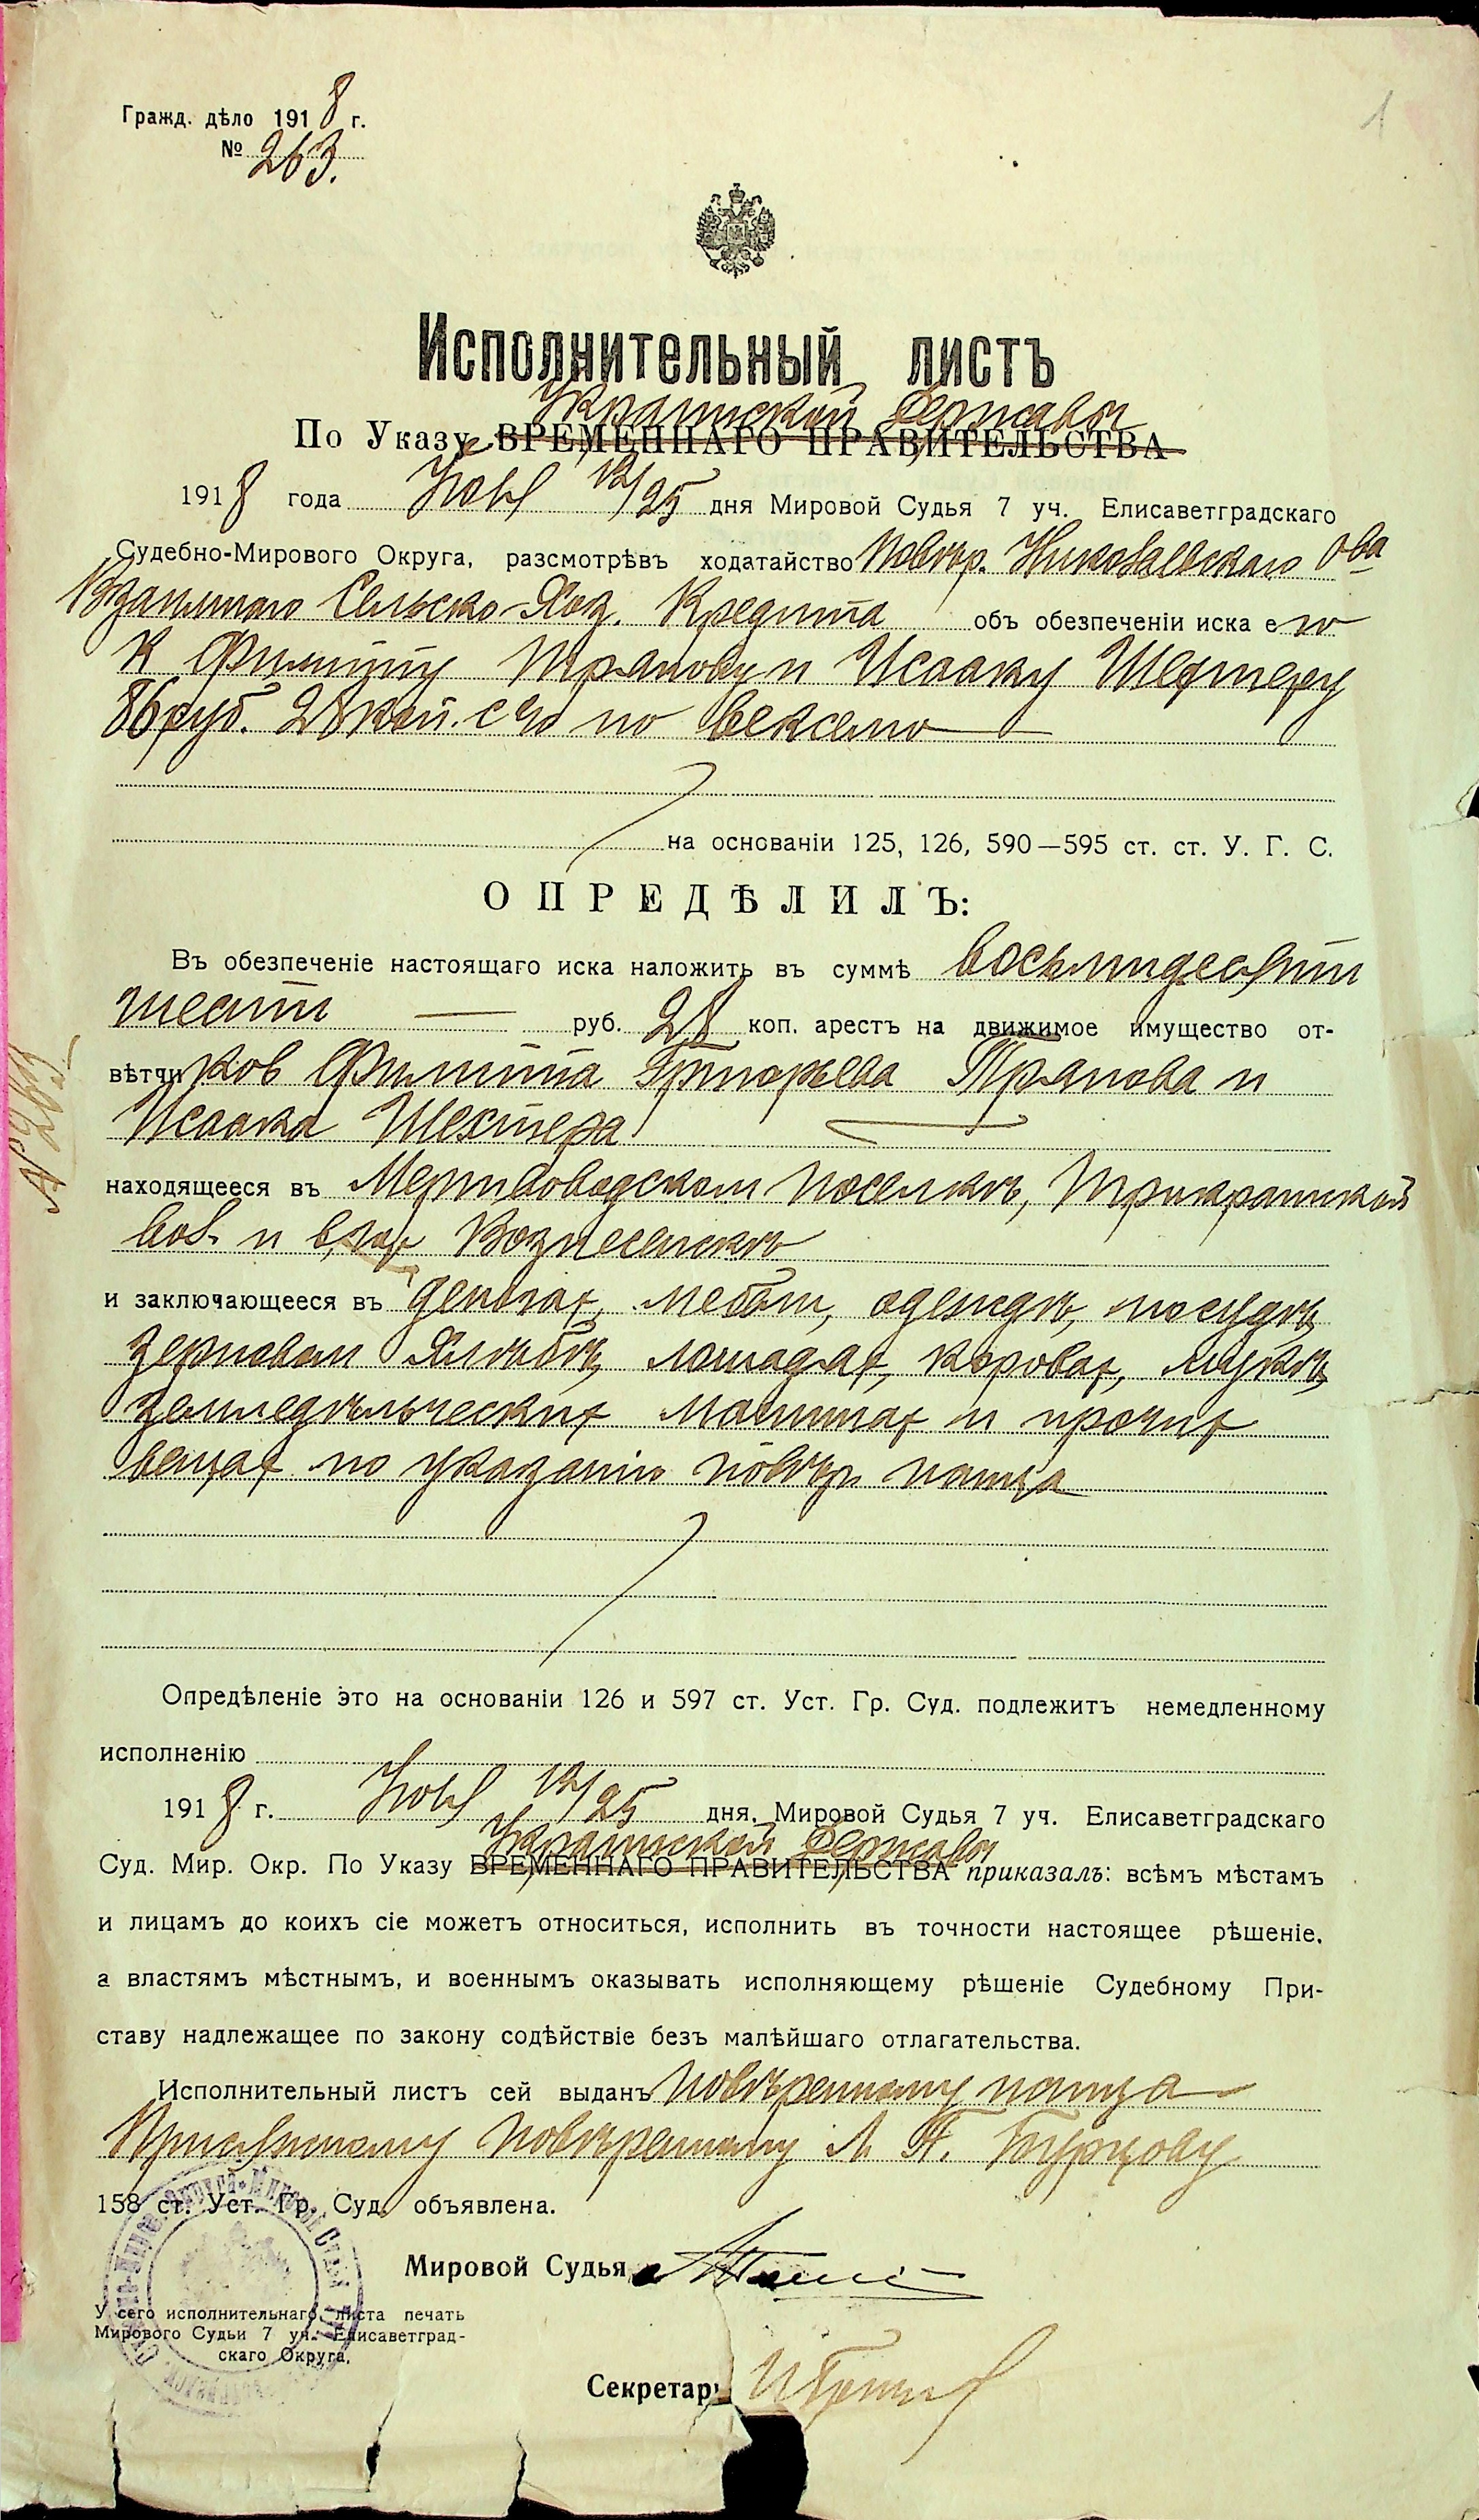 1
Гражд. дѣло 1918 г.
№ 263.
Исполнительный листъ
Украинской Державы
По Указу ВРЕМЕННАГО ПРАВИТЕЛЬСТВА
1918 года 12/25 дня Мировой Судья 7 уч. Елисаветградскаго
Судебно-Мирового Округа, разсмотрѣвъ ходатайство Повѣр. Николаевскаго О-ва
Взаимнаго Сельско-Хоз. Кредита объ обезпеченіи иска его
к Филиппу Трянову и Исааку Шехтеру
86 руб. 28 коп. с % по векселю
на основаніи 125, 126, 590—595 ст. ст. У. Г. С.
ОПРЕДѢЛИЛЪ:
Въ обезпеченіе настоящаго иска наложить въ суммѣ восьмидесяти
шести руб. 28 коп. арестъ на движимое имущество от-
вѣтчиков Филиппа Григорьева Трянова и
Исаака Шехтера
№ 263
находящееся въ Мертвоводском поселкѣ, Трикратской
вол. и в гор Вознесенскѣ
и заключающееся въ деньгах, мебели, одеждѣ, посудѣ,
зерновом хлѣбѣ, лошадях, коровах, мукѣ,
земледѣльческих машинах и прочих
вещах по указанію повѣр. истца
Опредѣленіе это на основаніи 126 и 597 ст. Уст. Гр. Суд. подлежитъ немедленному
исполненію
1918 г. 12/25 дня, Мировой Судья 7 уч. Елисаветградскаго
Украинской Державы
Суд. Мир. Окр. По Указу ВРЕМЕННАГО ПРАВИТЕЛЬСТВА приказалъ: всѣмъ мѣстамъ
и лицамъ до коихъ сіе можетъ относиться, исполнить въ точности настоящее рѣшеніе,
а властямъ мѣстнымъ, и военнымъ оказывать исполняющему рѣшеніе Судебному При-
ставу надлежащее по закону содѣйствіе безъ малѣйшаго отлагательства.
Исполнительный листъ сей выданъ повѣренному истца
Присяжному повѣренному Л. П. Бурцову
158 ст. Уст. Гр. Суд. объявлена.
Мировой Судья
У сего исполнительнаго листа печать
Мирового Судьи 7 уч. Елисаветград-
скаго Округа.
Секретарь